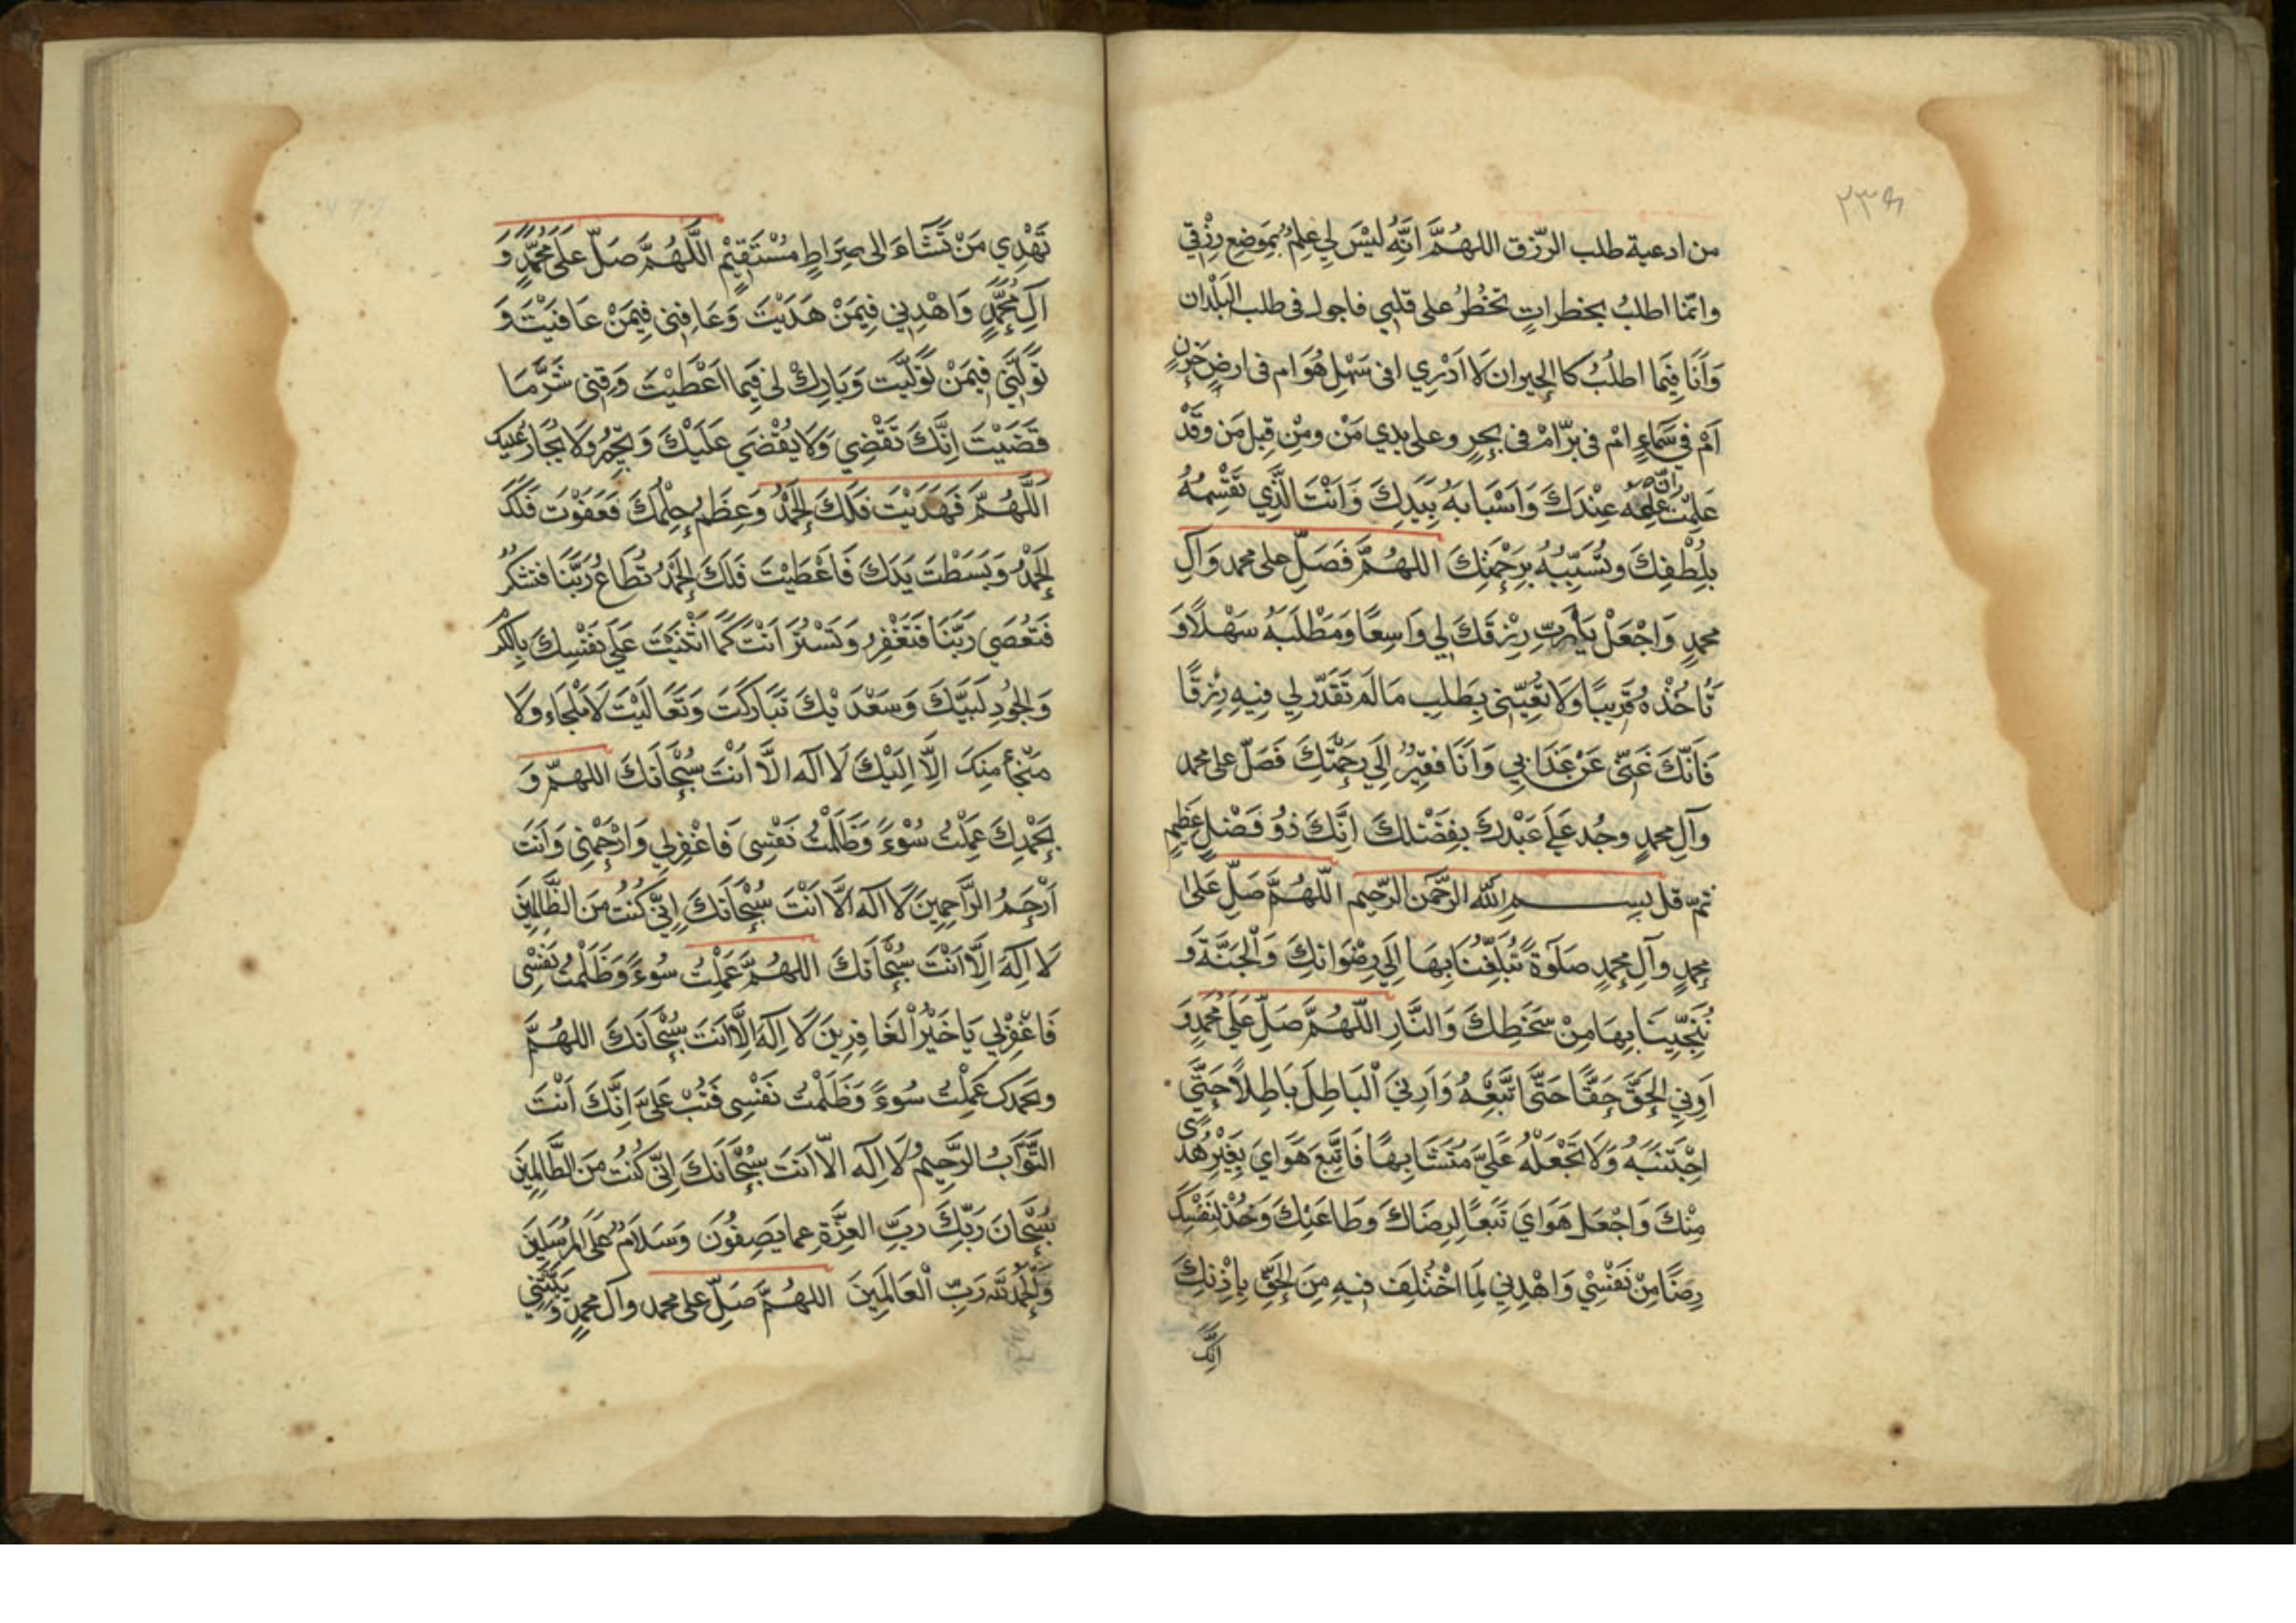 من ادعية طلب الرّزق اللهُمَّ اِنَّهُ لَيْسَ لِي عِلْمٌ بِمَوضِعِ رِزْقي
وانّما اطلبُ بخطراتٍ تخطُرُ على قلبي فاجول في طلب البُلْدان
وَاَنَا فِيمَا اطلُبُ كالحيران لَا اَدْرِي افى سَهْلٍ هُوَ ام فى ارضٍ حَزْنٍ
اَمْ في سَمَاءٍ امْ فى برّ امْ فى بحرٍ وعلى يدي مَنْ ومِنْ قِبلِ مَن وقَدْ
عَلِمْتُ انّ عِلمَهُ عِنْدَكَ وَاَسْبَابَهُ بِيَدِكَ وَاَنْتَ الَّذِي تَقْسِمُهُ
بِلُطْفِكَ وتُسَبِّبُهُ بِرَحْمَتِكَ اللهُمَّ فَصَلِّ على محمد وَآلِ
محمدٍ وَاجْعَلْ يَارَبِّ رِزْقَكَ لِي وَاسِعًا وَمَطْلَبَهُ سَهْلًا وَ
تأخُذُهُ قَرِيبًا وَلَا تُعِنّني بِطَلبِ مَا لَم تُقَدّر لِي فِيهِ رِزْقًا
فَاِنّكَ غَنيّ عَنْ عَذَابي وَاَنَا فَقِيرٌ اِلَي رَحْمَتِكَ فَصَلّ على محمد
وآلِ محمدٍ وجُد عَلَي عَبْدِكَ بفِضْلكَ اِنَّكَ ذوُ فَضْلٍ عَظِيمٍ
ثمّ قل بِسم الله الرَّحْمَن الرّحِيم اَللّهُمَّ صَلّ عَلى
محمدٍ وآلِ محمدٍ صلوةً تُبَلِّغُنَا بِهَا اِلَي رِضْوَانِكَ وَالْجَنَّةَ وَ
تُنَجِّينَا بِهَا مِنْ سَخَطِكَ وَالنَّارِ اَللّهُمَّ صَلّ عَلَي مُحَمدٍ وَ
اَرِنِي الحَقَّ حَقًّا حَتَّي اتَّبِعَهُ وَاَرِنِيَ الْبَاطِلَ بَاطِلًا حَتَّي
اجْتَنِبَهُ وَلَا تَجْعَلْهُ عَلَيَّ مُتَشَابِهًا فَاَتَّبِعَ هَوَايَ بِغَيْرِ هُدًى
مِنْكَ وَاجْعَل هَوَايَ تَبَعًا لِرِضَاكَ وَطَاعَتِكَ وَخُذ لِنَفْسِكَ
رِضًا مِنْ نَفْسِي وَاهْدِنِي لِمَا اخْتُلِفَ فِيهِ مِنَ الحَقِّ بِاِذْنِكَ
اِنَّكَ
تَهْدِي مَنْ تَشَاءُ الى صِرَاطٍ مُسْتَقِيْمٍ اَللَّهُمَّ صَلّ عَلَى مُحَمَّدٍ وَ
آلِ مُحَمَّدٍ وَاهْدِنِي فِيمَنْ هَدَيْتَ وَعَافِنِي فِيمَنْ عَافَيْتَ وَ
تَوَلَّنِي فِيمَنْ تَوَلَّيت وَبَارِكْ لِي فِيمَا اَعْطَيْتَ وَقِنِي شَرَّ مَا
قَضَيْتَ اِنَّكَ تَقْضِي وَلَا يُقْضَي عَلَيْكَ وَتُجِيرُ وَلَا يُجَارُ عَليك
اَللَّهُمَّ فَهَدَيْتَ فَلَكَ الحَمْدُ وَعِظُم حِلْمُكَ فَعَفَوْتَ فَلَكَ
الحَمْدُ وَبَسَطْتَ يَدَكَ فَاَعْطَيْتَ فَلَكَ الحَمْدُ تُطَاعُ رَبَّنَا فَتَشكرُ
فَتُعْصَي رَبّنَا فَتَغْفِرُ وَتَسْتُرُ اَنْتَ كَمَا اثْنَيْتَ عَلَي نَفْسِكَ بِالكَرَمِ
وَالجُودِ لَبَيَّكَ وَسَعْدَيْكَ تَبَارَكْتَ وَتَعَالَيْتَ لَا مَلْجَاءَ وَلَا
مَنْجَأَ مِنكَ اِلّا اِلَيْكَ لَا اله الَّا اَنتَ سُبْحَانَكَ اللهمّ وَ
بِحَمْدِكَ عَمِلْتُ سُوْءً وَظَلَمْتُ نَفْسِى فَاغْفِرلِي وَارْحَمْنِى وَاَنتَ
اَرْحَمُ الرَّاحِمِينَ لَا اله الَّا اَنْتَ سُبْحَانَكَ اِنِّي كُنْتُ مِنَ الظَّالِمِينَ
لَا اِلَهَ اِلَّا اَنْتَ سُبْحَانَكَ اللهُمَّ عَمِلْتُ سُوءً وَظَلَمْتُ نَفْسِي
فَاغْفِرْلِي يَا خَيْرُ الْغَافِرِينَ لَا اِلَهَ اِلَّا اَنتَ سُبْحَانَكَ اللهُمَّ
وبحَمدِكَ عَمِلْتُ سُوءً وَظَلَمْتُ نَفْسِى فَتُبْ عَلَيَّ اِنَّكَ اَنْتَ
التَّوَّابُ الرَّحِيمُ لَا اِلَه الَّا اَنتَ سُبْحَانَكَ اِنِّي كُنْتُ مِنَ الظَّالِمِينَ
سُبْحَانَ رَبِّكَ رَبِّ العِزَّةِ عما يَصِفُونَ وَسَلَامٌ عَلَى المُرْسَلِينَ
وَالْحَمْدُ لله رَبِّ الْعَالَمِينَ اللهُمَّ صَلّ على محمد وآل محمدٍ وَبَيّتْنِي